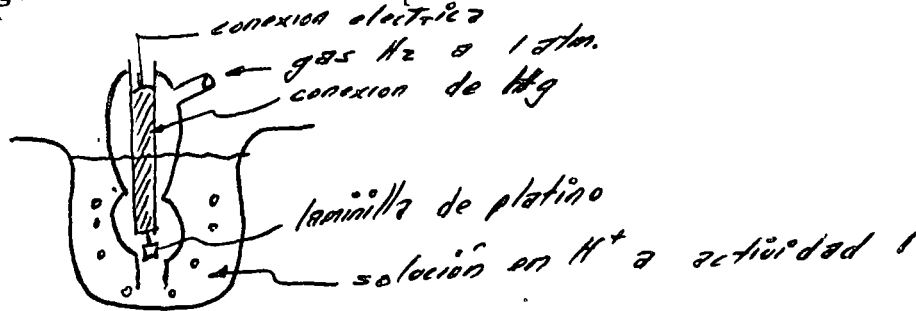 conexion electrica
gas H2 a 1 atm.
conexion de Hg
laminilla de platino
solución en H+ a actividad 1